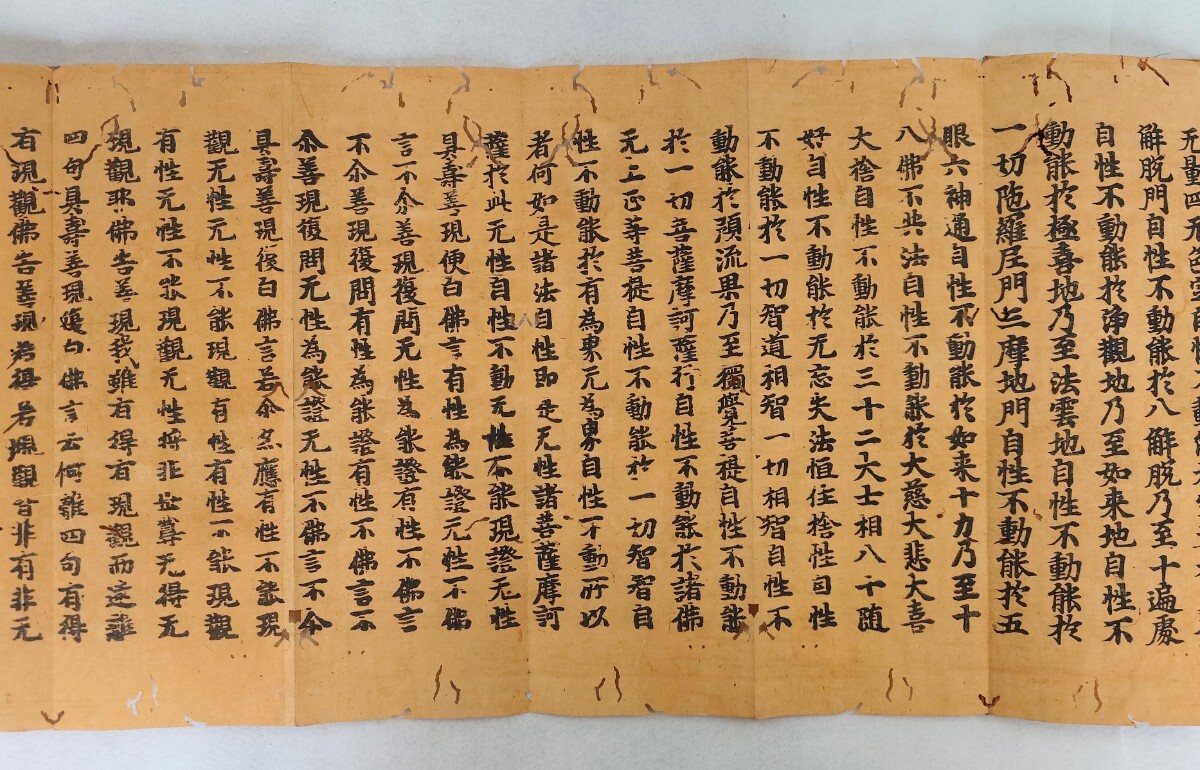 无量四无色定自性不動能於八
解脱門自性不動能於八解脱乃至十遍處
自性不動能於淨觀地乃至如来地自性不
動能於極喜地乃至法雲地自性不動能於
一切陁羅尼門三摩地門自性不動能於五
眼六神通自性不動能於如来十力乃至十
八佛不共法自性不動能於大慈大悲大喜
大捨自性不動能於三十二大士相八十随
好自性不動能於无忘失法恒住捨性自性
不動能於一切智道相智一切相智自性不
動能於預流果乃至獨覺菩提自性不動能
於一切菩薩摩訶薩行自性不動能於諸佛
无上正等菩提自性不動能於一切智智自
性不動能於有為界无為界自性不動所以
者何如是諸法自性即是无性諸菩薩摩訶
薩於此无性自性不動无性不能現證无性
具壽善現便白佛言有性為能證无性不佛
言不尒善現復問无性為能證有性不佛言
不尒善現復問有性為能證有性不佛言不
尒善現復問无性為能證无性不佛言不尒
具壽善現復白佛言若尒者應有性不能現
觀无性无性不能現觀有性有性不能現觀
有性无性不能現觀无性将非世尊无得无
現觀耶佛告善現我雖有得有現觀而遠離
四句具壽善現復白佛言云何離四句有得
有現觀佛告善現若得若現觀皆非有非无